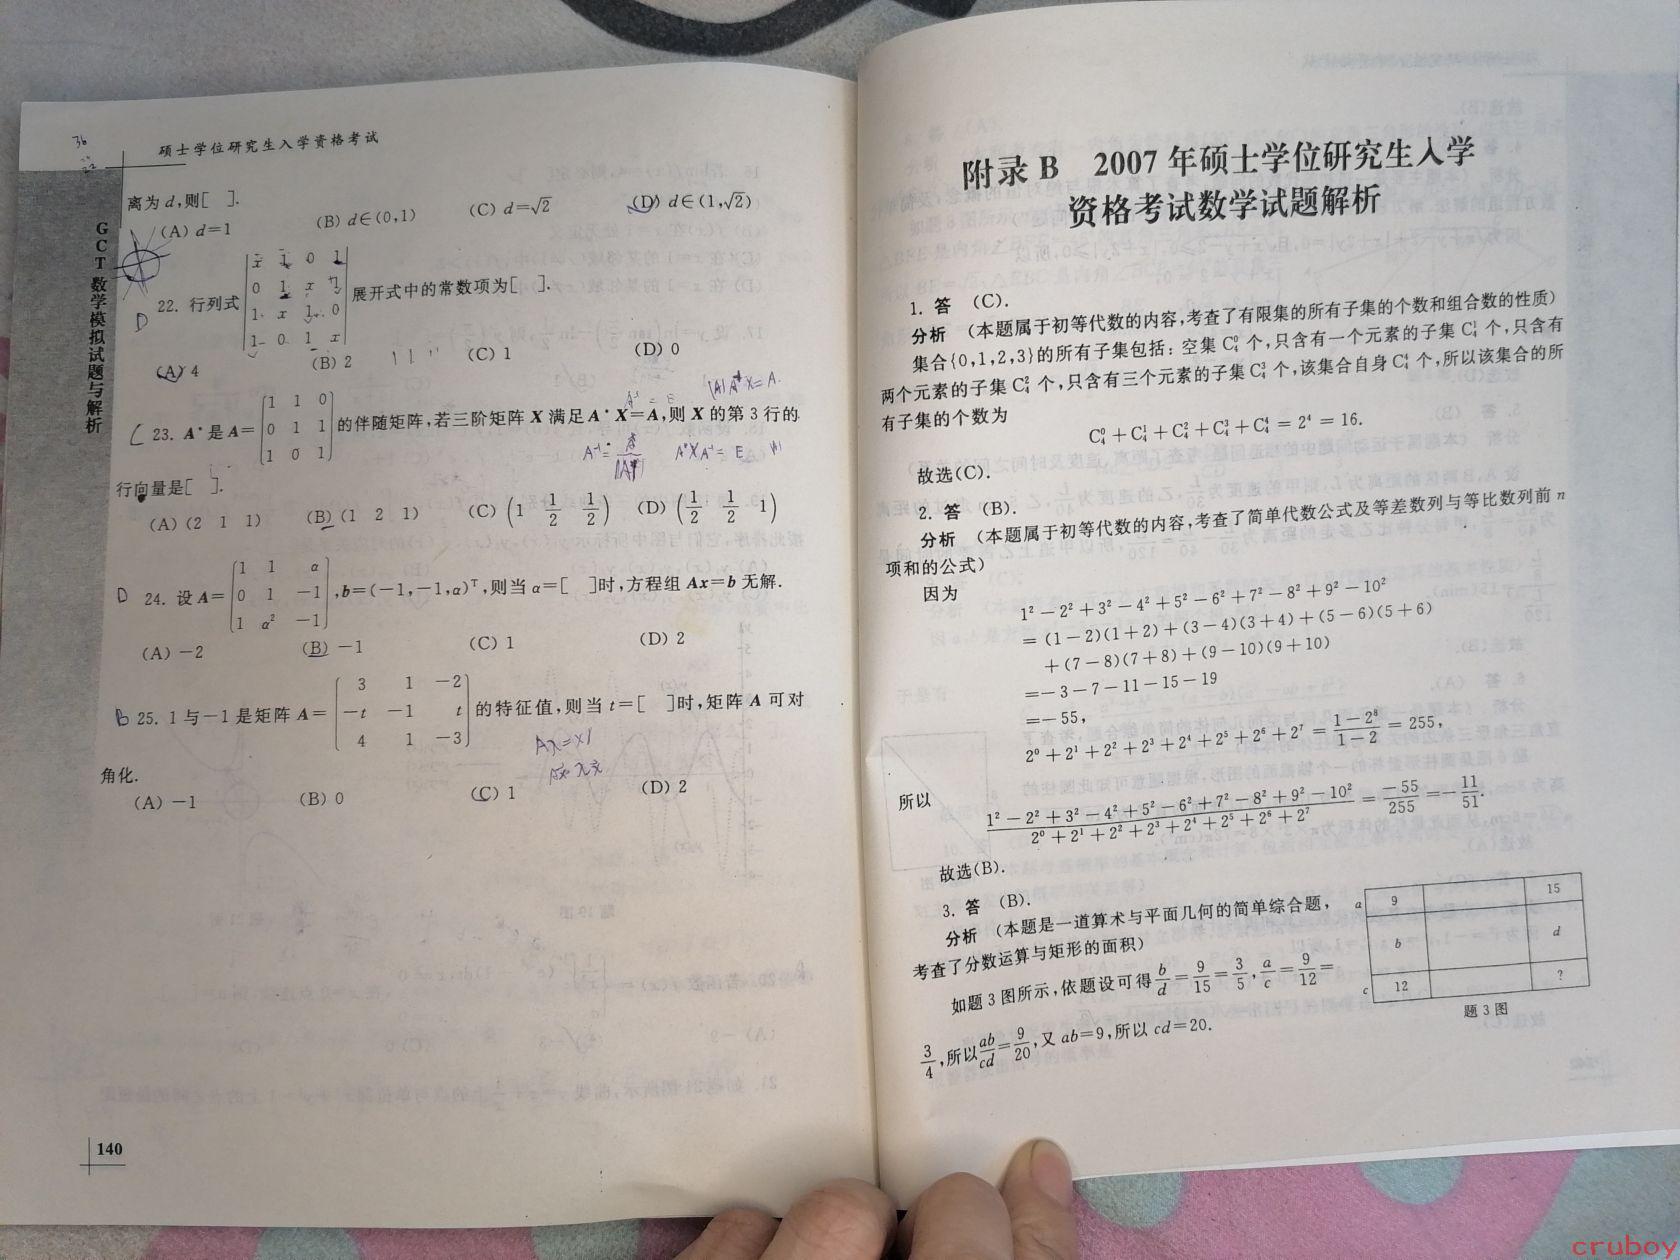 硕士学位研究生入学资格考试
36
22
GCT数学模拟试题与解析
离为 d,则[ ].
(A) d=1 (B) d∈(0,1) (C) d=√2 (D) d∈(1,√2)
22. 行列式 | x 1 0 1 |
| 0 1 x 1 |
| 1 x 1 0 |
| 1 0 1 x | 展开式中的常数项为[ ].
D
(A) 4 (B) 2 (C) 1 (D) 0
|A|A*X=A.
23. A*是A= [1 1 0]
[0 1 1]
[1 0 1] 的伴随矩阵,若三阶矩阵 X 满足 A*X=A,则 X 的第 3 行的
A*XA⁻¹= E
行向量是[ ].
(A) (2 1 1) (B) (1 2 1) (C) (1 1/2 1/2) (D) (1/2 1/2 1)
D 24. 设A= [1 1 α]
[0 1 −1]
[1 α² −1] ,b=(−1,−1,α)ᵀ,则当 α=[ ]时,方程组 Ax=b 无解.
(A) −2 (B) −1 (C) 1 (D) 2
B 25. 1 与−1 是矩阵 A= [3 1 −2]
[−t −1 t]
[4 1 −3] 的特征值,则当 t=[ ]时,矩阵 A 可对
角化.
(A) −1 (B) 0 (C) 1 (D) 2
140
附录 B 2007 年硕士学位研究生入学
资格考试数学试题解析
1. 答 (C).
分析 (本题属于初等代数的内容,考查了有限集的所有子集的个数和组合数的性质)
集合{0,1,2,3}的所有子集包括: 空集 C₄⁰ 个,只含有一个元素的子集 C₄¹ 个,只含有
两个元素的子集 C₄² 个,只含有三个元素的子集 C₄³ 个,该集合自身 C₄⁴ 个,所以该集合的所
有子集的个数为
C₄⁰ + C₄¹ + C₄² + C₄³ + C₄⁴ = 2⁴ = 16.
故选(C).
2. 答 (B).
分析 (本题属于初等代数的内容,考查了简单代数公式及等差数列与等比数列前 n
项和的公式)
因为
1² − 2² + 3² − 4² + 5² − 6² + 7² − 8² + 9² − 10²
= (1−2)(1+2) + (3−4)(3+4) + (5−6)(5+6)
+ (7−8)(7+8) + (9−10)(9+10)
=−3−7−11−15−19
=−55,
2⁰ + 2¹ + 2² + 2³ + 2⁴ + 2⁵ + 2⁶ + 2⁷ = (1−2⁸)/(1−2) = 255,
所以
(1² − 2² + 3² − 4² + 5² − 6² + 7² − 8² + 9² − 10²)/(2⁰ + 2¹ + 2² + 2³ + 2⁴ + 2⁵ + 2⁶ + 2⁷) = −55/255 = −11/51.
故选(B).
3. 答 (B).
分析 (本题是一道算术与平面几何的简单综合题,
考查了分数运算与矩形的面积)
如题 3 图所示,依题设可得 b/d = 9/15 = 3/5, a/c = 9/12 =
3/4,所以 ab/cd = 9/20,又 ab=9,所以 cd=20.
a 9 15
b d
c 12 ?
题 3 图
cruboy